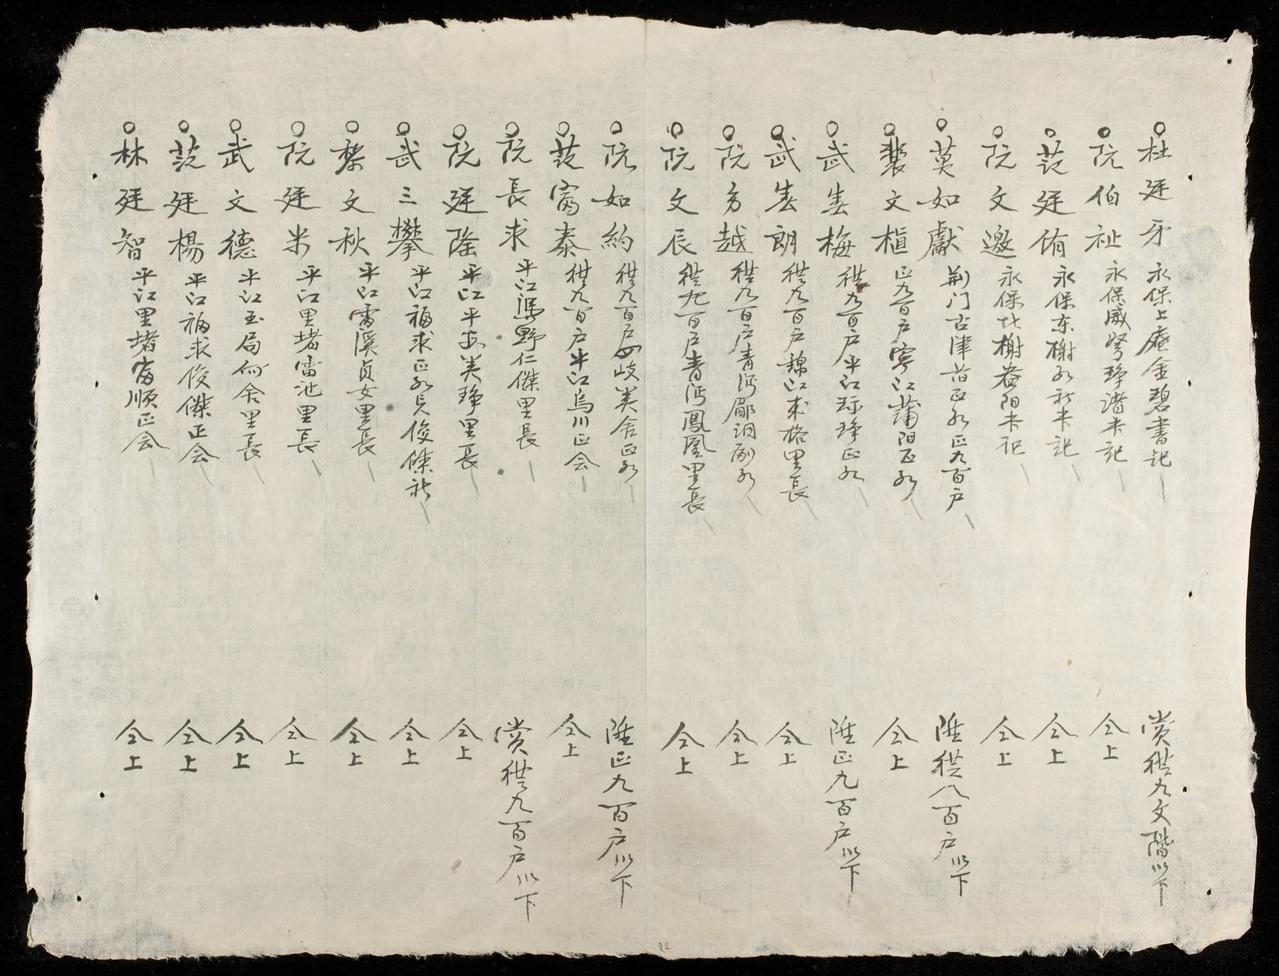 杜廷牙 永保上庵金碧書記 賞從九文階以下
阮伯祉 永保威弩琤潽書記 仝上
范廷侑 永保东榭 記 仝上
阮文邀 永保 榭 阳 記 仝上
莫如獻 荆门古津 正 正九百户 陞從八百户以下
裴文植 正九百户寧江蒲阳正 仝上
武春梅 從九百户平江 琤正 陞正九百户以下
武春朗 從九百户錦江求格里長 仝上
阮方越 從九百户青沔 洞副 仝上
阮文辰 從九百户青沔鳳凰里長 仝上
阮如約 從九百户四岐美舍正 陞正九百户以下
范富泰 從九百户平江烏川正会 仝上
阮長求 平江 野仁傑里長 賞從九百户以下
阮廷隆 平江平 美琤里長 仝上
武三攀 平江福求正 員俊傑社 仝上
黎文秋 平江雷溪貞女里長 仝上
阮廷米 平江里堵雷池里長 仝上
武文德 平江玉局向舍里長 仝上
范廷楊 平江福求俊傑正会 仝上
林廷智 平江里堵富順正会 仝上